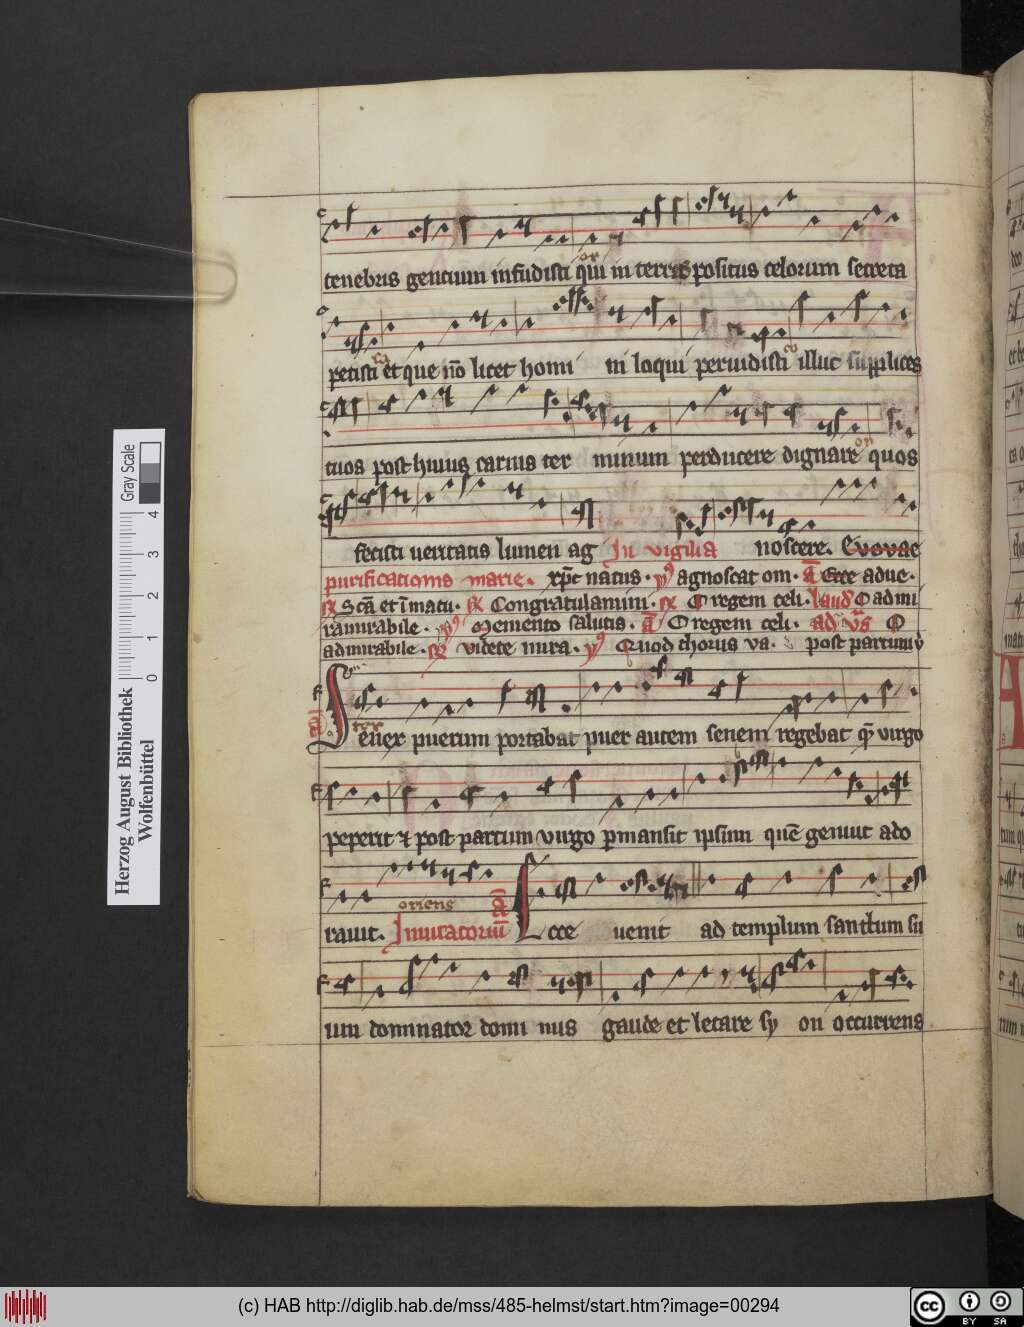 tenebris gentium infudisti qui in terris positus celorum secreta
petisti et que nō licet homi ni loqui peruidisti illuc supplices
tuos post huius carnis ter minum perducere dignare quos
fecisti ueritatis lumen ag In vigilia noscere. Euouae
purificationis marie. xp̄c natus. agnoscat om. ā Ecce adue.
Scā et īmatu. Congratulamini. O regem celi. laud O admi
ramirabile. Memento salutis. ā O regem celi. ad O
admirabile. videte mira. Quod chorus va. post partum v
Senex puerum portabat puer autem senem regebat virgo
peperit et post partum virgo pmansit ipsum quē genuit ado
oriens
rauit. Inuitatoriū Ecce uenit ad templum sanctum su
um dominator domi nus gaude et letare sy on occurrens
Herzog August Bibliothek
Wolfenbüttel
Gray Scale
0 1 2 3 4
(c) HAB http://diglib.hab.de/mss/485-helmst/start.htm?image=00294
cc BY SA